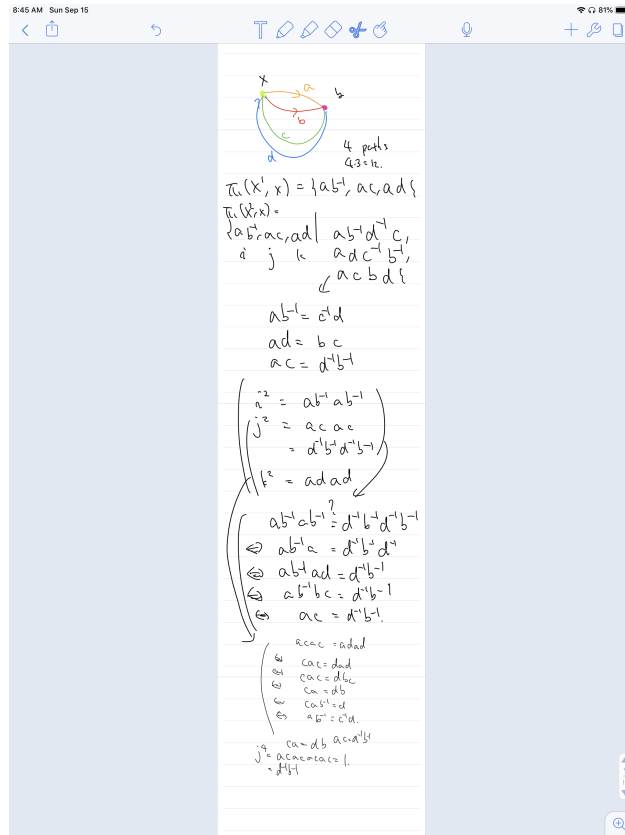 8:45 AM Sun Sep 15
81%
T
x
a
b
b
c
d
4 paths
4·3 = 12.
π₁(X¹, x) = {ab⁻¹, ac, ad}
π₁(X², x) =
{ab⁻¹, ac, ad | ab⁻¹d⁻¹c,
i j k adc⁻¹b⁻¹,
acbd}
ab⁻¹ = c⁻¹d
ad = bc
ac = d⁻¹b⁻¹
i² = ab⁻¹ab⁻¹
j² = acac
= d⁻¹b⁻¹d⁻¹b⁻¹
k² = adad
ab⁻¹ab⁻¹ ?= d⁻¹b⁻¹d⁻¹b⁻¹
⇔ ab⁻¹a = d⁻¹b⁻¹d⁻¹
⇔ ab⁻¹ad = d⁻¹b⁻¹
⇔ ab⁻¹bc = d⁻¹b⁻¹
⇔ ac = d⁻¹b⁻¹.
acac = adad
⇔ cac = dad
⇔ cac = dbc
⇔ ca = db
⇔ cab⁻¹ = d
⇔ ab⁻¹ = c⁻¹d.
ca = db ac = d⁻¹b⁻¹
j⁴ = acacacac = 1.
= d⁻¹b⁻¹